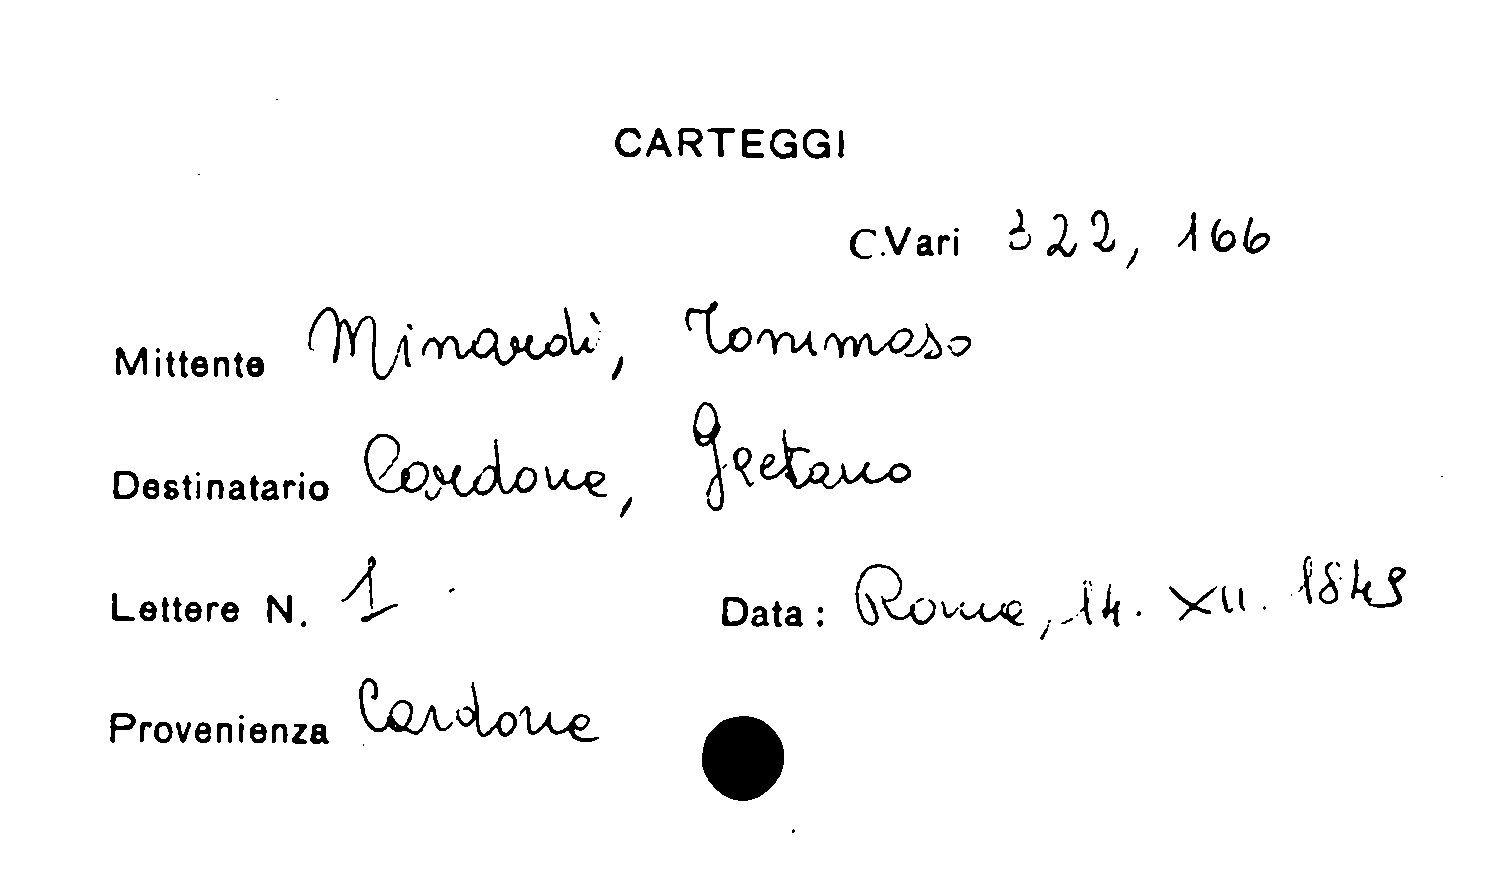 CARTEGGI
C.Vari 322, 166
Mittente Minardi, Tommaso
Destinatario Cardone, Gaetano
Lettere N. 1 Data: Roma, 14. XII. 1849
Provenienza Cardone